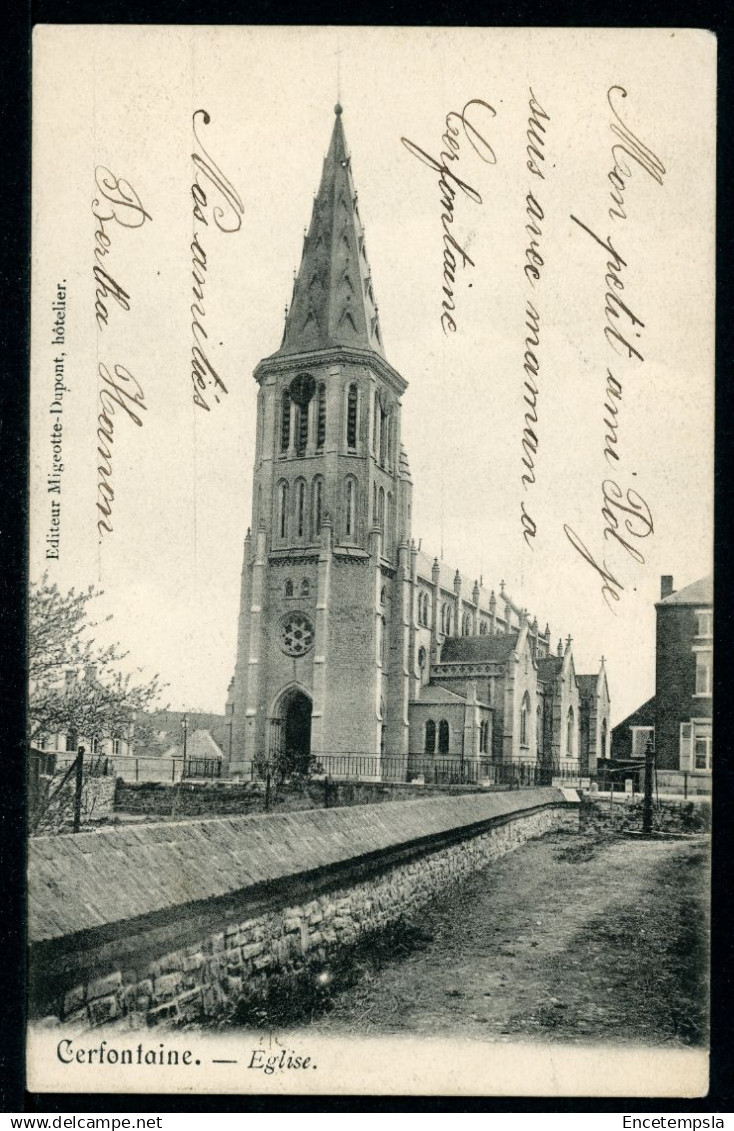 Mon petit ami Pol je
suis avec maman a
Cerfontainc
Mos amitiés
Bertha Hanon
Editeur Migeotte-Dupont, hôtelier.
Cerfontaine. — Eglise.
www.delcampe.net
Encetempsla